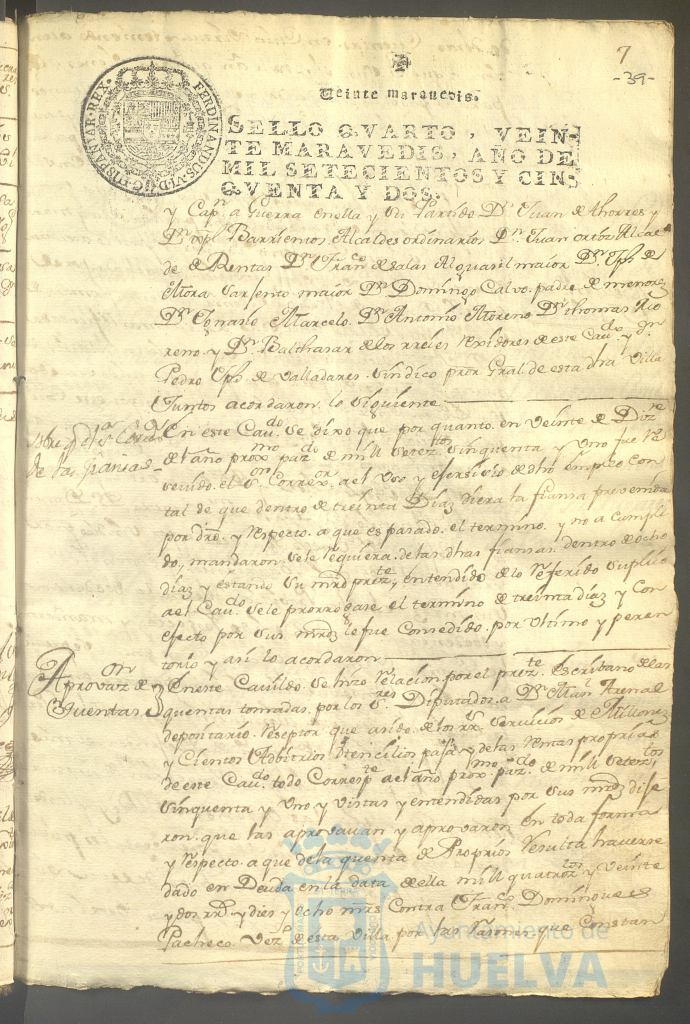 7
-39-
FERDINANDUS·VI·D·G·HISPANIAR·REX·
Veinte marauedis.
SELLO QVARTO, VEIN-
TE MARAVEDIS, AÑO DE
MIL SETECIENTOS Y CIN-
QVENTA Y DOS.
y Capn. a Guerra en ella y su Partido Dn. Juan de thorres y
Barrientos Alcaldes ordinarios Dn. Juan ortiz Alcal
de de Rentas Dn. Franco. de salas Alguasil maior Dn. Jph de
Mora Sarjento maior Dn. Domingo Calvo padre de menores
Dn. Ignasio Marcelo. Dn. Antonio Moreno Dn. thomas Mo
reno y Dn. Balthasar de los rreies Rexidores de este Caudo. y dn.
Pedro Jph de Valladares sindico pror Gral. de esta dha Villa
Juntos acordaron lo siguiente
de las fiansas
En este Caudo. se dixo que por quanto en veinte de Dizre.
del año proxmo. pazdo. de mill setezttos. sinquenta y uno fue rz
sevido el sor. Correxor. a el uso y exersisio de dho empleo con
tal de que dentro de treinta Diaz diera la fiansa prevenida
por dro. y respecto a que es pasado el termino y no a cumpli
do, mandaron se le requiera de las dhas fiansas dentro de ocho
diaz y estando su mrd prezte. entendido de lo referido suplicó
a el Caudo. se le prorrogase el termino de treinta diaz y con
efecto por sus mrdz le fue consedido por ultimo y peren
torio y asi lo acordaron
Aprovazon. de
quentas
En este Cavildo se hizo relacion por el prezte. escribano de las
quentas tomadas por los sres. Diputados a Dn. Manl. Arenal
depositario reseptor que asido de los rrs. servicios de Millones
y Cientos Arbitrios Utencilios paja y de las rentas propriaz
de este Caudo. todo Correspte. a el año proxmo. pazdo. de mill seteztos.
sinquenta y uno y vistas y entendidas por sus mrdz dixe
ron que las aprovavan y aprovaron en toda forma
y respecto a que de la quenta de Proprios resulta haverse
dado en Deuda en la data de ella mill quatroztos. y veinte
y dos rrs. y dies y ocho mrs Contra Franco. Domingues
Pacheco Vezo. de esta Villa por las rasones que Constan
Ayuntamiento de
HUELVA